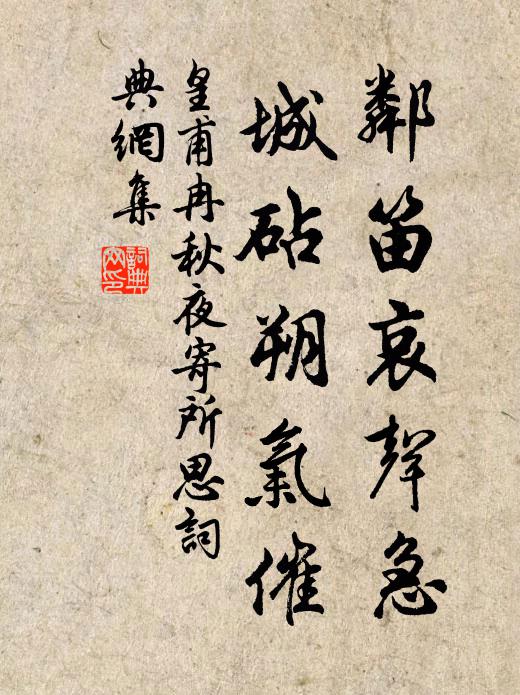 鄰笛哀聲急
城砧朔氣催
皇甫冉秋夜寄所思詞
典網集
詞典
网印